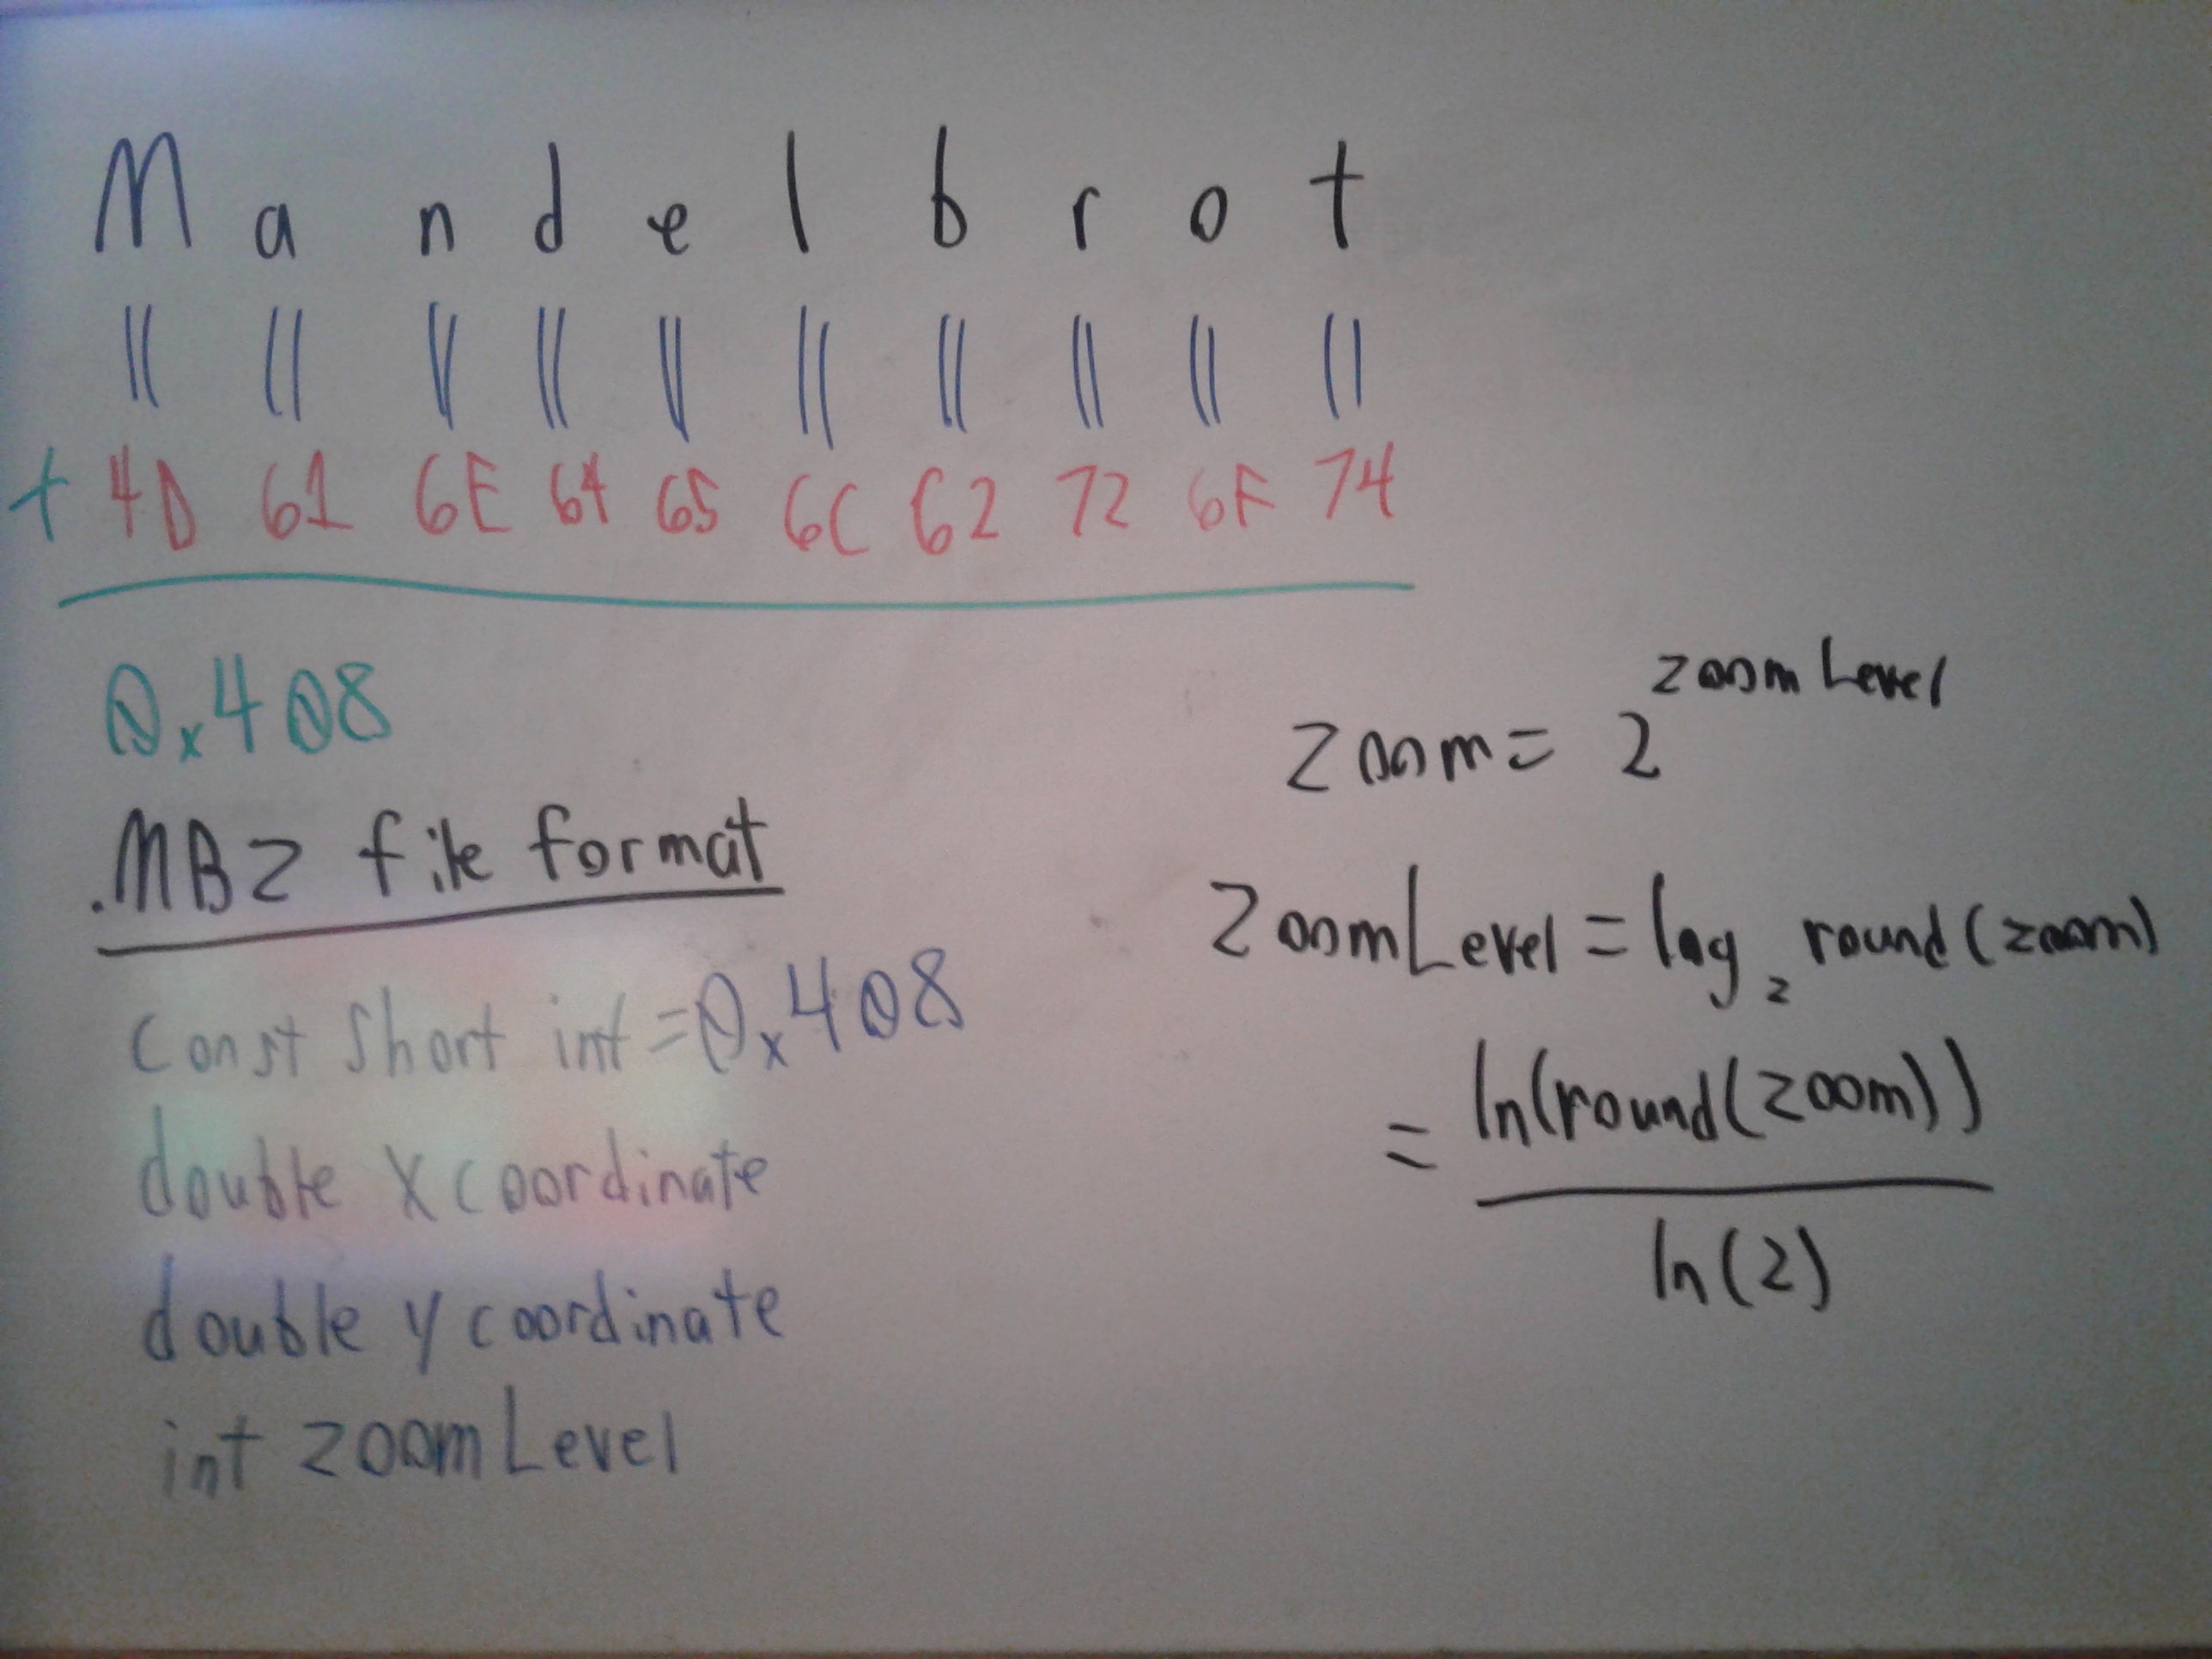 M a n d e l b r o t
|| || || || || || || || || ||
+ 4D 61 6E 64 65 6C 62 72 6F 74
0x408
.MBZ file format
const short int = 0x408
double x coordinate
double y coordinate
int zoomLevel
zoom = 2^zoomLevel
ZoomLevel = log₂ round(zoom)
= ln(round(zoom))
ln(2)